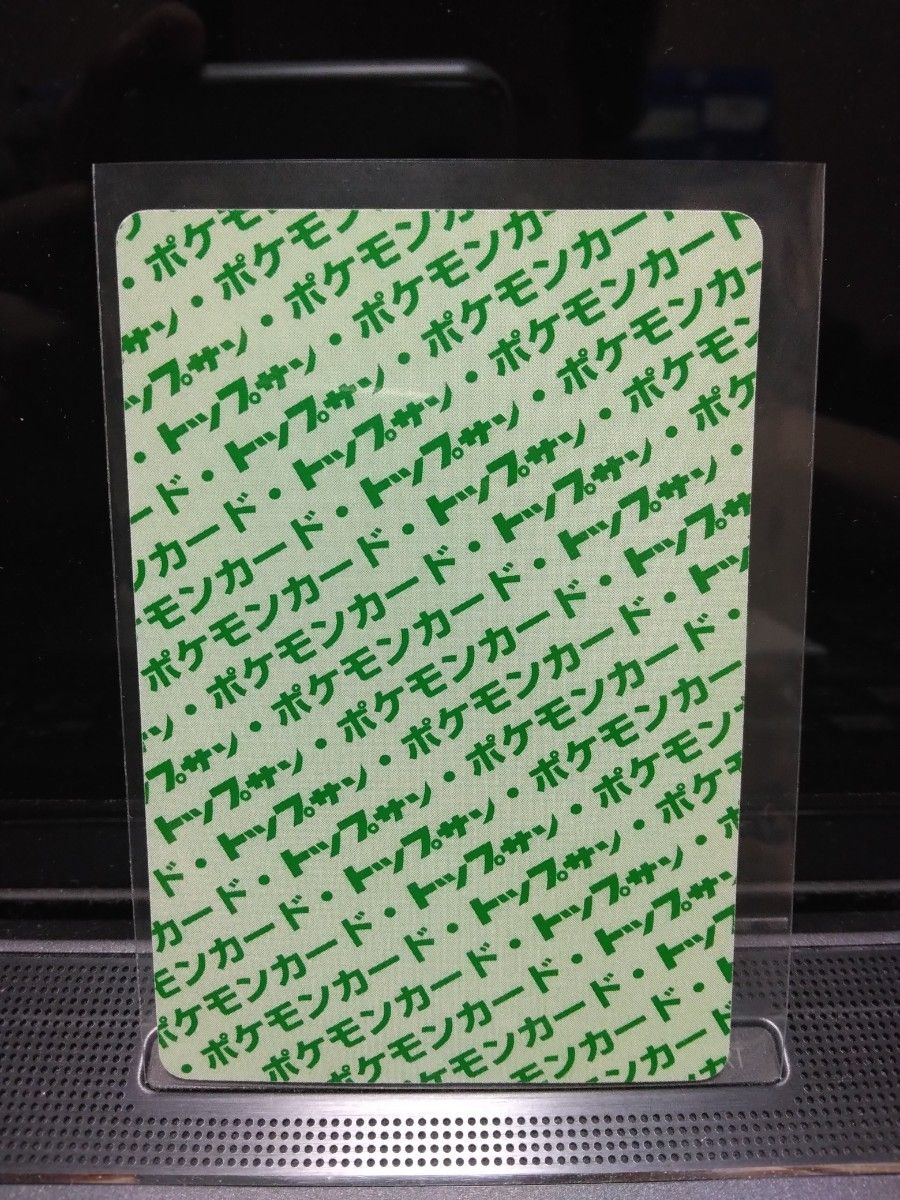 ・ポケモ
サン・ポケモン
ップサン・ポケモン
・トップサン・ポケモンカ
ード・トップサン・ポケモンカー
ンカード・トップサン・ポケモンカード
モンカード・トップサン・ポケモンカー
ポケモンカード・トップサン・ポケモン
・ポケモンカード・トップサン・ポケ
ン・ポケモンカード・トップサン・
プサン・ポケモンカード・トップサ
トップサン・ポケモンカード・トッ
ド・トップサン・ポケモンカード・
カード・トップサン・ポケモンカー
モンカード・トップサン・ポケモン
ポケモンカード・トップサン・ポケモ
・ポケモンカード・トップサン・ポ
ポケモンカード・トップサ
ポケモンカード・トッ
モンカード・